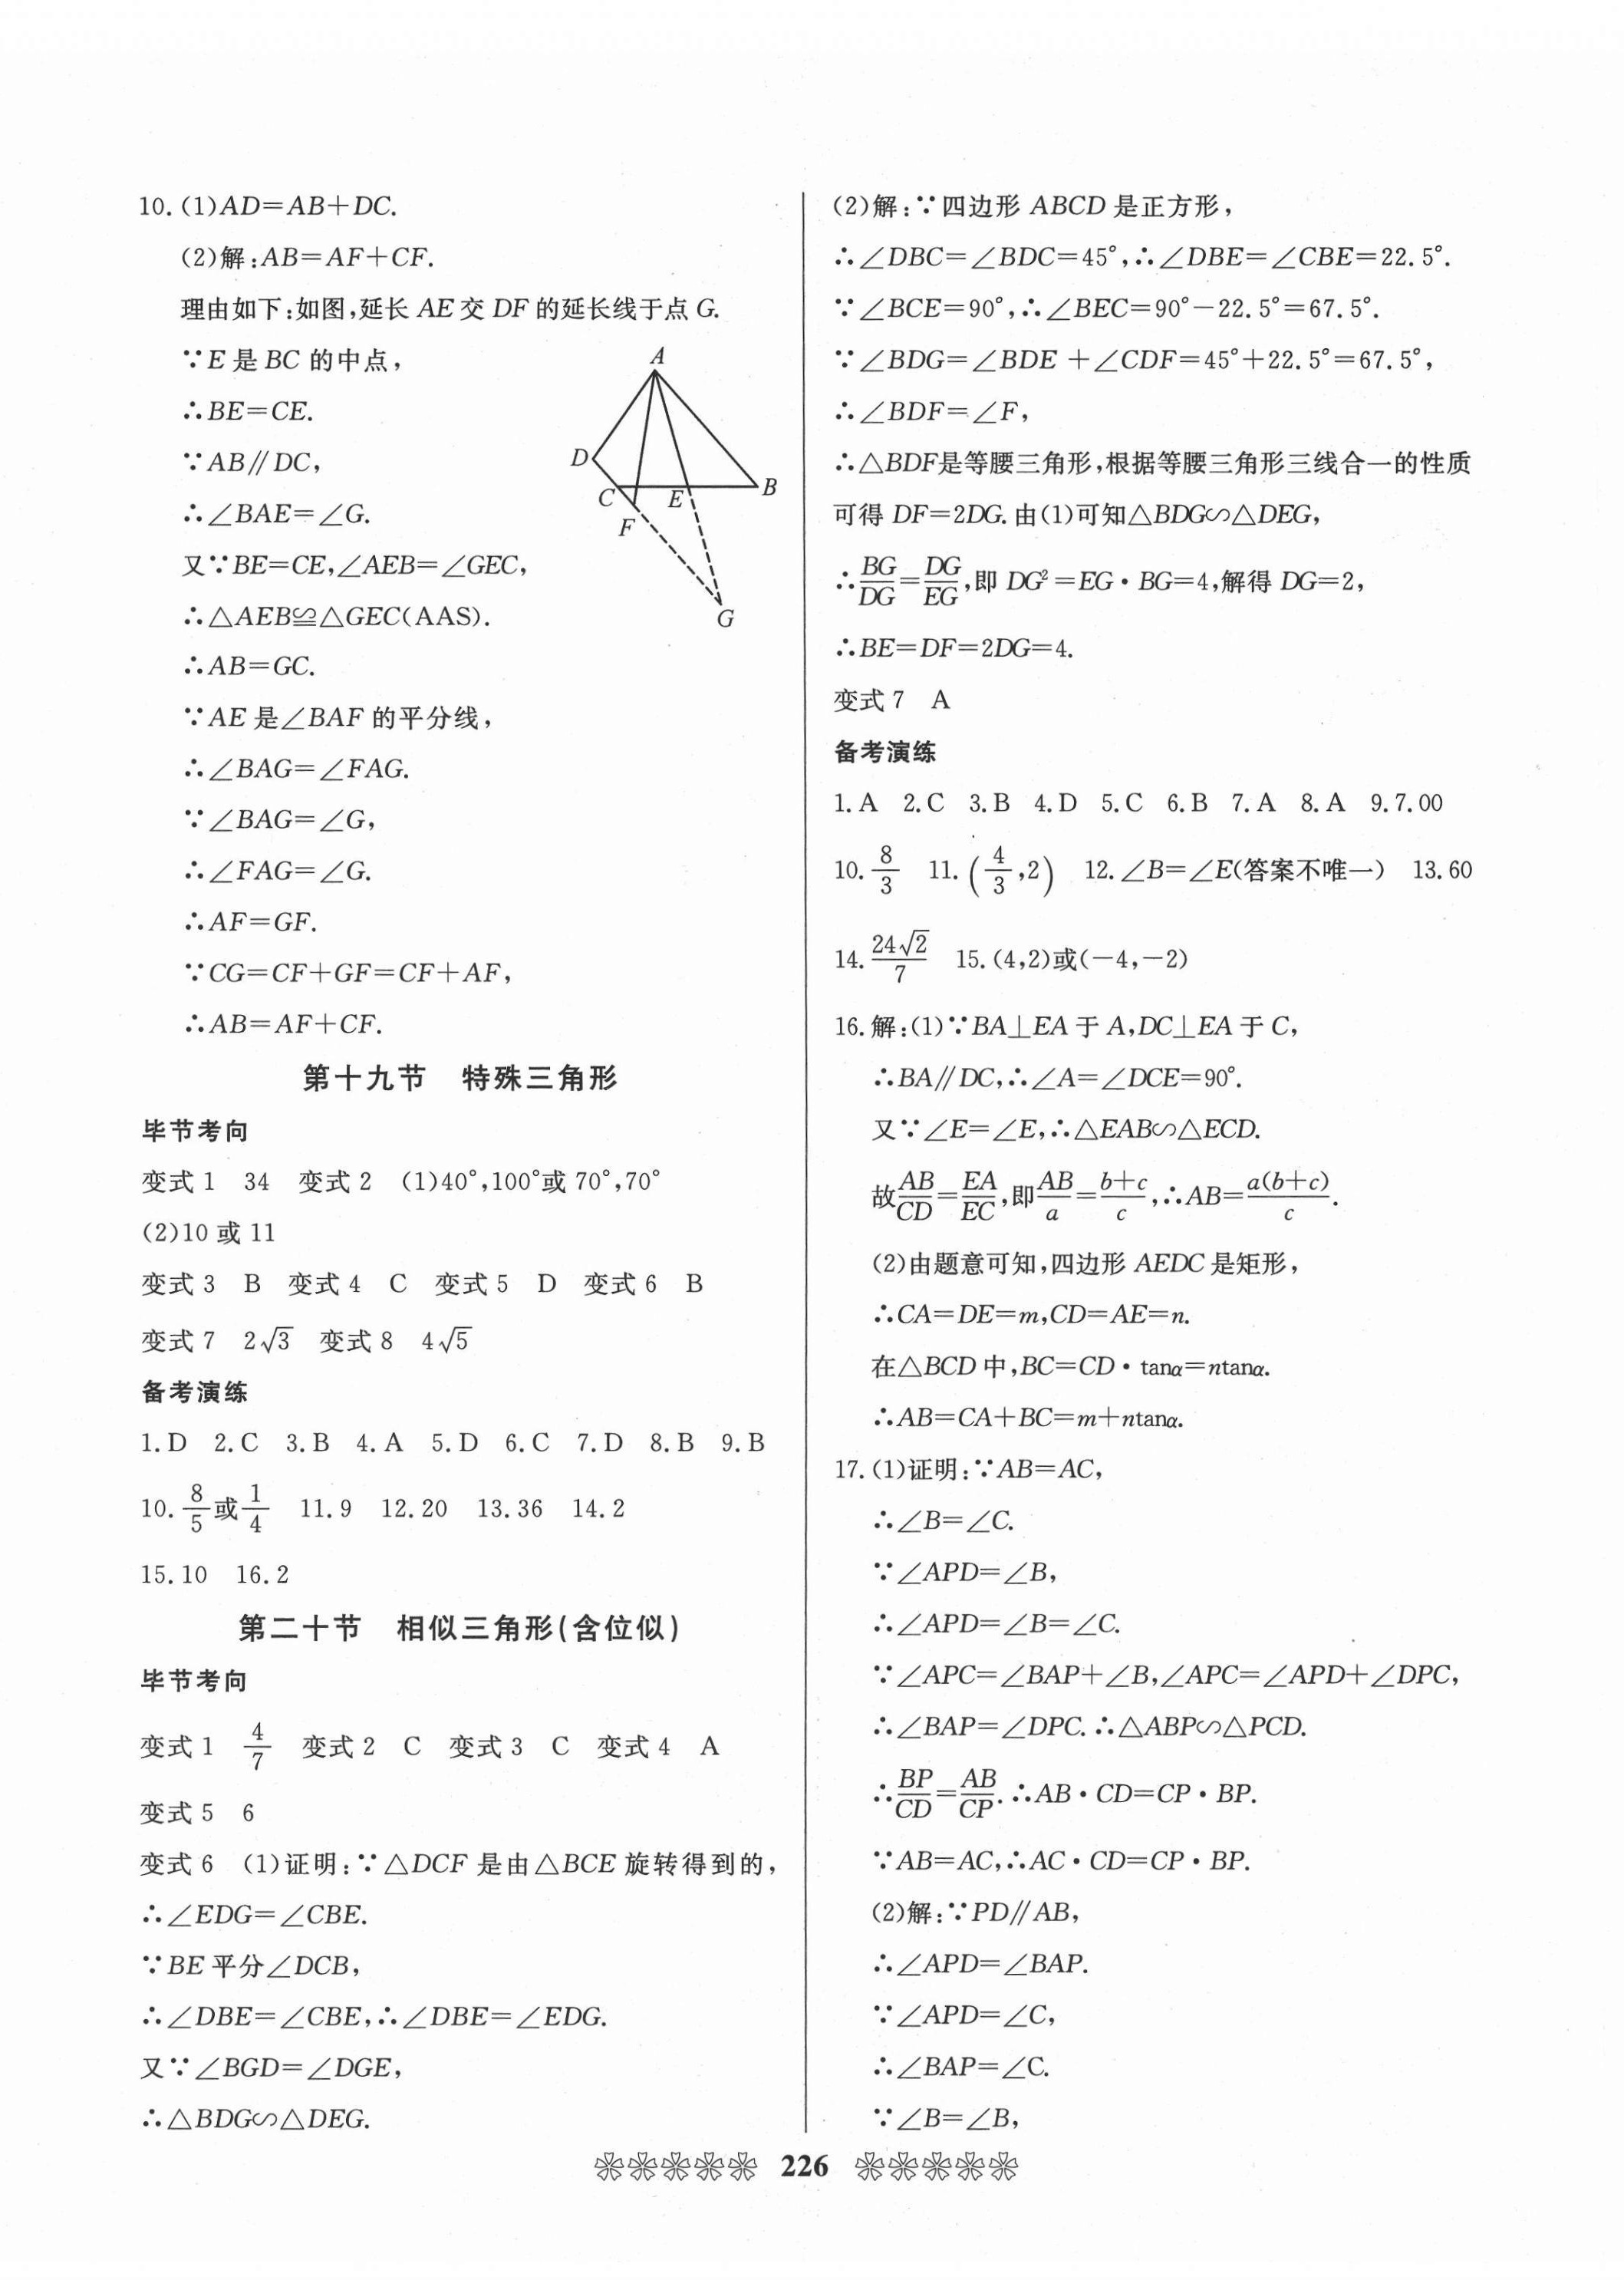 10. (1)AD=AB+DC.
(2)解:AB=AF+CF.
理由如下:如图,延长 AE 交 DF 的延长线于点 G.
∵E 是 BC 的中点,
∴BE=CE.
∵AB∥DC,
∴∠BAE=∠G.
又∵BE=CE,∠AEB=∠GEC,
∴△AEB≌△GEC(AAS).
∴AB=GC.
∵AE 是∠BAF 的平分线,
∴∠BAG=∠FAG.
∵∠BAG=∠G,
∴∠FAG=∠G.
∴AF=GF.
∵CG=CF+GF=CF+AF,
∴AB=AF+CF.
A
D
C
E
B
F
G
第十九节 特殊三角形
毕节考向
变式 1 34 变式 2 (1)40°,100°或 70°,70°
(2)10 或 11
变式 3 B 变式 4 C 变式 5 D 变式 6 B
变式 7 2√3 变式 8 4√5
备考演练
1. D 2. C 3. B 4. A 5. D 6. C 7. D 8. B 9. B
10. 8/5或1/4 11. 9 12. 20 13. 36 14. 2
15. 10 16. 2
第二十节 相似三角形(含位似)
毕节考向
变式 1 4/7 变式 2 C 变式 3 C 变式 4 A
变式 5 6
变式 6 (1)证明:∵△DCF 是由△BCE 旋转得到的,
∴∠EDG=∠CBE.
∵BE 平分∠DCB,
∴∠DBE=∠CBE,∴∠DBE=∠EDG.
又∵∠BGD=∠DGE,
∴△BDG∽△DEG.
(2)解:∵四边形 ABCD 是正方形,
∴∠DBC=∠BDC=45°,∴∠DBE=∠CBE=22.5°.
∵∠BCE=90°,∴∠BEC=90°-22.5°=67.5°.
∵∠BDG=∠BDE +∠CDF=45°+22.5°=67.5°,
∴∠BDF=∠F,
∴△BDF是等腰三角形,根据等腰三角形三线合一的性质
可得 DF=2DG. 由(1)可知△BDG∽△DEG,
∴BG/DG=DG/EG,即 DG²=EG·BG=4,解得 DG=2,
∴BE=DF=2DG=4.
变式 7 A
备考演练
1. A 2. C 3. B 4. D 5. C 6. B 7. A 8. A 9. 7.00
10. 8/3 11. (4/3,2) 12. ∠B=∠E(答案不唯一) 13. 60
14. 24√2/7 15. (4,2)或(-4,-2)
16. 解:(1)∵BA⊥EA 于 A,DC⊥EA 于 C,
∴BA∥DC,∴∠A=∠DCE=90°.
又∵∠E=∠E,∴△EAB∽△ECD.
故AB/CD=EA/EC,即AB/a=b+c/c,∴AB=a(b+c)/c.
(2)由题意可知,四边形 AEDC 是矩形,
∴CA=DE=m,CD=AE=n.
在△BCD 中,BC=CD·tanα=ntanα.
∴AB=CA+BC=m+ntanα.
17. (1)证明:∵AB=AC,
∴∠B=∠C.
∵∠APD=∠B,
∴∠APD=∠B=∠C.
∵∠APC=∠BAP+∠B,∠APC=∠APD+∠DPC,
∴∠BAP=∠DPC. ∴△ABP∽△PCD.
∴BP/CD=AB/CP. ∴AB·CD=CP·BP.
∵AB=AC,∴AC·CD=CP·BP.
(2)解:∵PD∥AB,
∴∠APD=∠BAP.
∵∠APD=∠C,
∴∠BAP=∠C.
∵∠B=∠B,
226